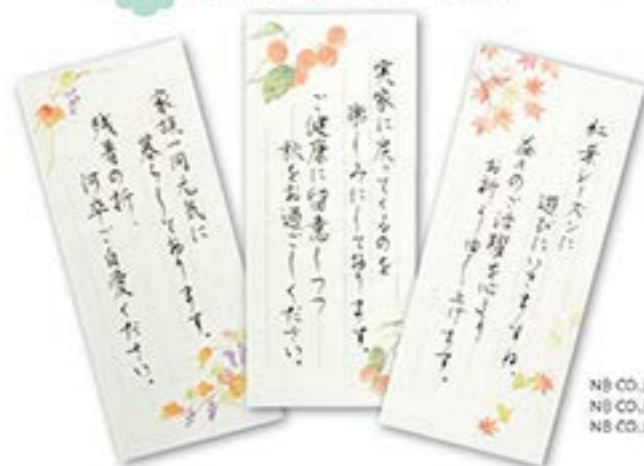 家族一同元気に
暮らしております。
残暑の折、
何卒ご自愛ください。
実家に戻ってくるのを
楽しみにしております。
ご健康に留意しつつ
秋をお過ごしください。
紅葉シーズンに
遊びにいきますね。
益々のご活躍を心より
お祈り申し上げます。
NB CO.
NB CO.
NB CO.